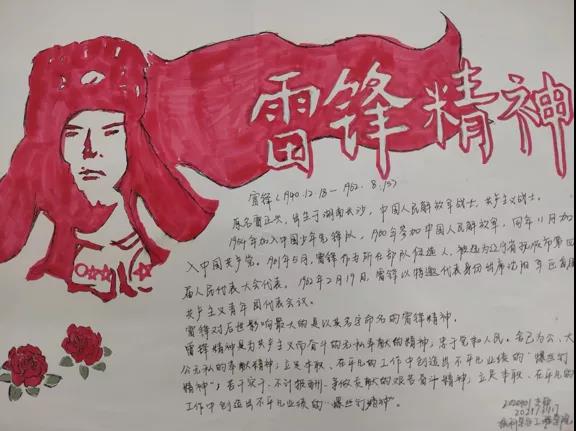 雷锋精神
雷锋（1940.12.18—1962.8.15）
原名雷正兴，出生于湖南长沙，中国人民解放军战士，共产主义战士，
1954年加入中国少年先锋队，1960年参加中国人民解放军，同年11月加
入中国共产党。1961年5月，雷锋作为所在部队候选人，被选为辽宁省抚顺市第四
届人民代表大会代表，1962年2月19日，雷锋以特邀代表身份出席沈阳军区首届
共产主义青年团代表会议。
雷锋对后世影响最大的是以其名字命名的雷锋精神。
雷锋精神是为共产主义而奋斗的无私奉献的精神；忠于党和人民、舍己为公、大
公无私的奉献精神；立足本职、在平凡的工作中创造出不平凡业绩的“螺丝钉
精神”；苦干实干、不计报酬、争做贡献的艰苦奋斗精神；立足本职、在平凡的
工作中创造出不平凡业绩的“螺丝钉精神”。